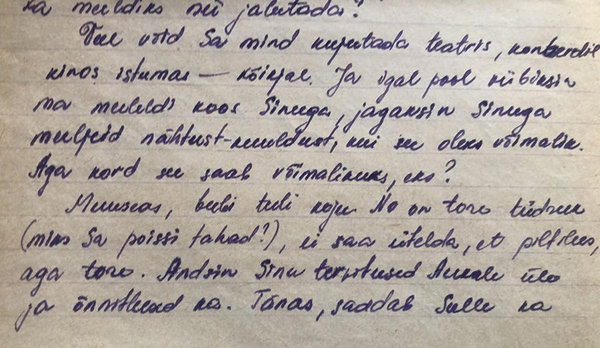 sa meeldiks nii jalutada?
Veel võid Sa mind kujutada teatris, kontserdil
kinos istumas – kõikjal. Ja igal pool viibiksin
ma meeleldi koos Sinuga, jagaksin Sinuga
muljeid nähtust-kuuldust, kui see oleks võimalik.
Aga kord see saab võimalikuks, eks?
Muuseas, beebi tuli koju. No on tore tüdruk
(miks Sa poissi tahad?), ei saa ütelda, et
aga tore. Andsin Sinu tervitused üle
ja õnnitlused ka. Tänas, saadab Sulle ka